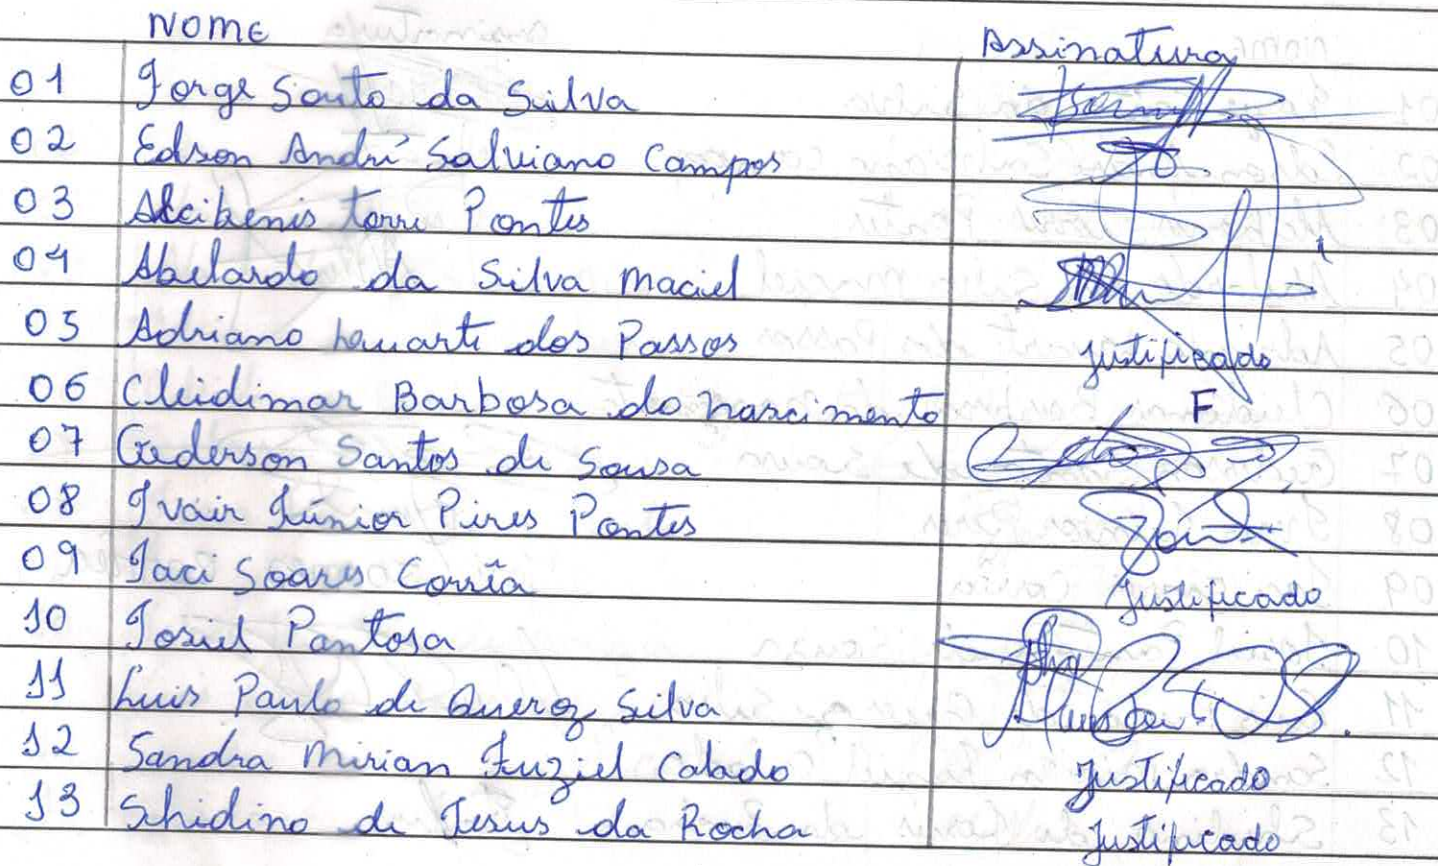 NOME Assinatura
01 Jorge Souto da Silva
02 Edson André Salviano Campos
03 Alcibenis torre Pontes
04 Abelardo da Silva Maciel
05 Adriano dos Passos Justificado
06 Cleidimar Barbosa do nascimento F
07 Gederson Santos de Sousa
08 Ivair Júnior Pires Pontes
09 Jaci Soares Corrêa Justificado
10 Josiel Pantoja
11 Luis Paulo de Queroz Silva
12 Sandra Mirian Fuziel Calado Justificado
13 Shidino de Jesus da Rocha Justificado